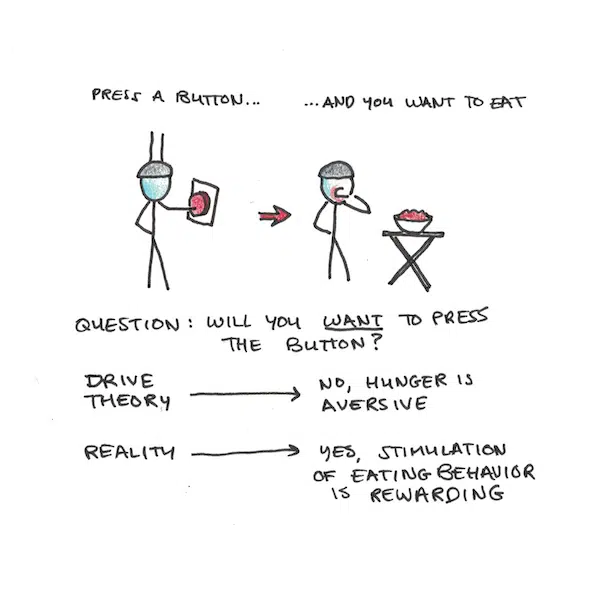 PRESS A BUTTON... ...AND YOU WANT TO EAT
QUESTION: WILL YOU WANT TO PRESS
THE BUTTON?
DRIVE
THEORY
NO, HUNGER IS
AVERSIVE
REALITY
YES, STIMULATION
OF EATING BEHAVIOR
IS REWARDING